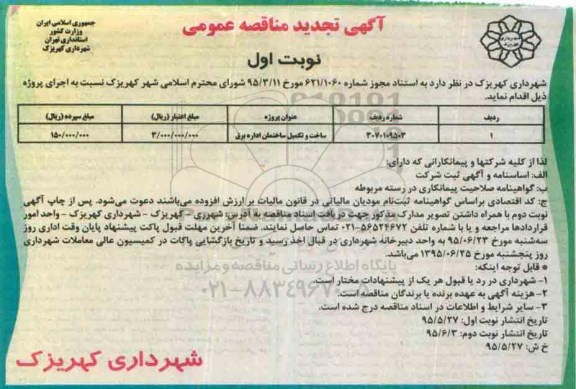 جمهوری اسلامی ایران
وزارت کشور
استانداری تهران
شهرداری کهریزک
آگهی تجدید مناقصه عمومی
نوبت اول
شهرداری کهریزک در نظر دارد به استناد مجوز شماره ۶۲۱/۱۰۶۰ مورخ ۹۵/۳/۱۱ شورای محترم اسلامی شهر کهریزک نسبت به اجرای پروژه
ذیل اقدام نماید.
ردیف شماره ردیف عنوان پروژه مبلغ اعتبار (ریال) مبلغ سپرده (ریال)
۱ ۳۰۷۰۱۰۹۵۰۳ ساخت و تکمیل ساختمان اداره برق ۳/۰۰۰/۰۰۰/۰۰۰ ۱۵۰/۰۰۰/۰۰۰
لذا از کلیه شرکتها و پیمانکارانی که دارای:
الف: اساسنامه و آگهی ثبت شرکت
ب: گواهینامه صلاحیت پیمانکاری در رسته مربوطه
ج: کد اقتصادی براساس گواهینامه ثبت‌نام مودیان مالیاتی در قانون مالیات بر ارزش افزوده می‌باشند دعوت می‌شود. پس از چاپ آگهی
نوبت دوم با همراه داشتن تصویر مدارک مذکور جهت دریافت اسناد مناقصه به آدرس: شهرری - کهریزک - شهرداری کهریزک - واحد امور
قراردادها مراجعه و یا با شماره تلفن ۵۶۵۲۴۶۷۲-۰۲۱ تماس حاصل نمایند. ضمنا آخرین مهلت قبول پاکت پیشنهاد پایان وقت اداری روز
سه‌شنبه مورخ ۹۵/۰۶/۲۳ به واحد دبیرخانه شهرداری در قبال اخذ رسید و تاریخ بازگشایی پاکات در کمیسیون عالی معاملات شهرداری
روز پنجشنبه مورخ ۱۳۹۵/۰۶/۲۵ می‌باشد.
* قابل توجه اینکه:
۱- شهرداری در رد یا قبول هر یک از پیشنهادات مختار است.
۲- هزینه آگهی به عهده برنده یا برندگان مناقصه است.
۳- سایر شرایط و اطلاعات در اسناد مناقصه درج شده است.
تاریخ انتشار نوبت اول: ۹۵/۵/۲۷
تاریخ انتشار نوبت دوم: ۹۵/۶/۳
خ ش: ۹۵/۵/۲۷
شهرداری کهریزک
پایگاه اطلاع رسانی مناقصه و مزایده
۰۲۱-۸۸۳۴۹۶۷۰